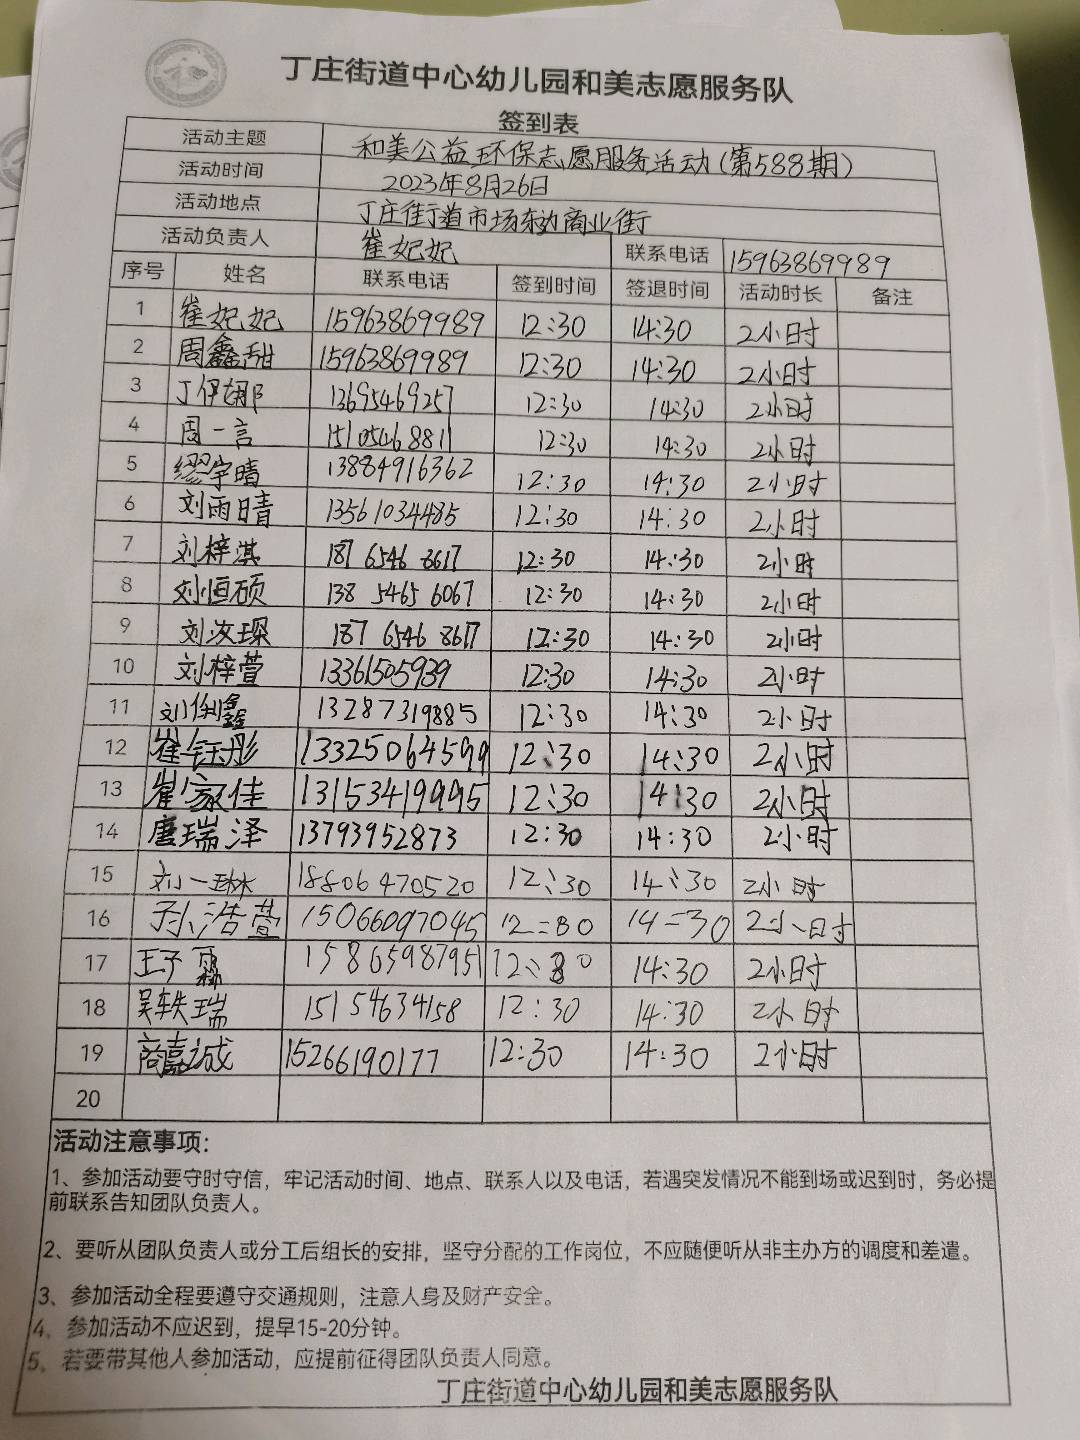 丁庄街道中心幼儿园和美志愿服务队
签到表
活动主题 和美公益环保志愿服务活动(第588期)
活动时间 2023年8月26日
活动地点 丁庄街道市场东边商业街
活动负责人 崔妃妃 联系电话 15963869989
序号 姓名 联系电话 签到时间 签退时间 活动时长 备注
1 崔妃妃 15963869989 12:30 14:30 2小时
2 周鑫甜 15963869989 12:30 14:30 2小时
3 丁伊娜 13695469257 12:30 14:30 2小时
4 周一言 15105468811 12:30 14:30 2小时
5 缪宇晴 13884916362 12:30 14:30 2小时
6 刘雨晴 13561034485 12:30 14:30 2小时
7 刘梓淇 187 6546 8617 12:30 14:30 2小时
8 刘恒硕 138 5465 6067 12:30 14:30 2小时
9 刘汝琛 187 6546 8617 12:30 14:30 2小时
10 刘梓萱 13361505939 12:30 14:30 2小时
11 刘俐鑫 13287319885 12:30 14:30 2小时
12 崔钰彤 13325064599 12:30 14:30 2小时
13 崔家佳 13153419995 12:30 14:30 2小时
14 唐瑞泽 13793952873 12:30 14:30 2小时
15 刘一琳 18806470520 12:30 14:30 2小时
16 孙浩萱 15066097045 12=30 14=30 2小时
17 王子霖 15865987951 12:30 14:30 2小时
18 吴轶瑞 15154634158 12:30 14:30 2小时
19 商嘉诚 15266190177 12:30 14:30 2小时
20
活动注意事项:
1、参加活动要守时守信，牢记活动时间、地点、联系人以及电话，若遇突发情况不能到场或迟到时，务必提
前联系告知团队负责人。
2、要听从团队负责人或分工后组长的安排，坚守分配的工作岗位，不应随便听从非主办方的调度和差遣。
3、参加活动全程要遵守交通规则，注意人身及财产安全。
4、参加活动不应迟到，提早15-20分钟。
5、若要带其他人参加活动，应提前征得团队负责人同意。
丁庄街道中心幼儿园和美志愿服务队